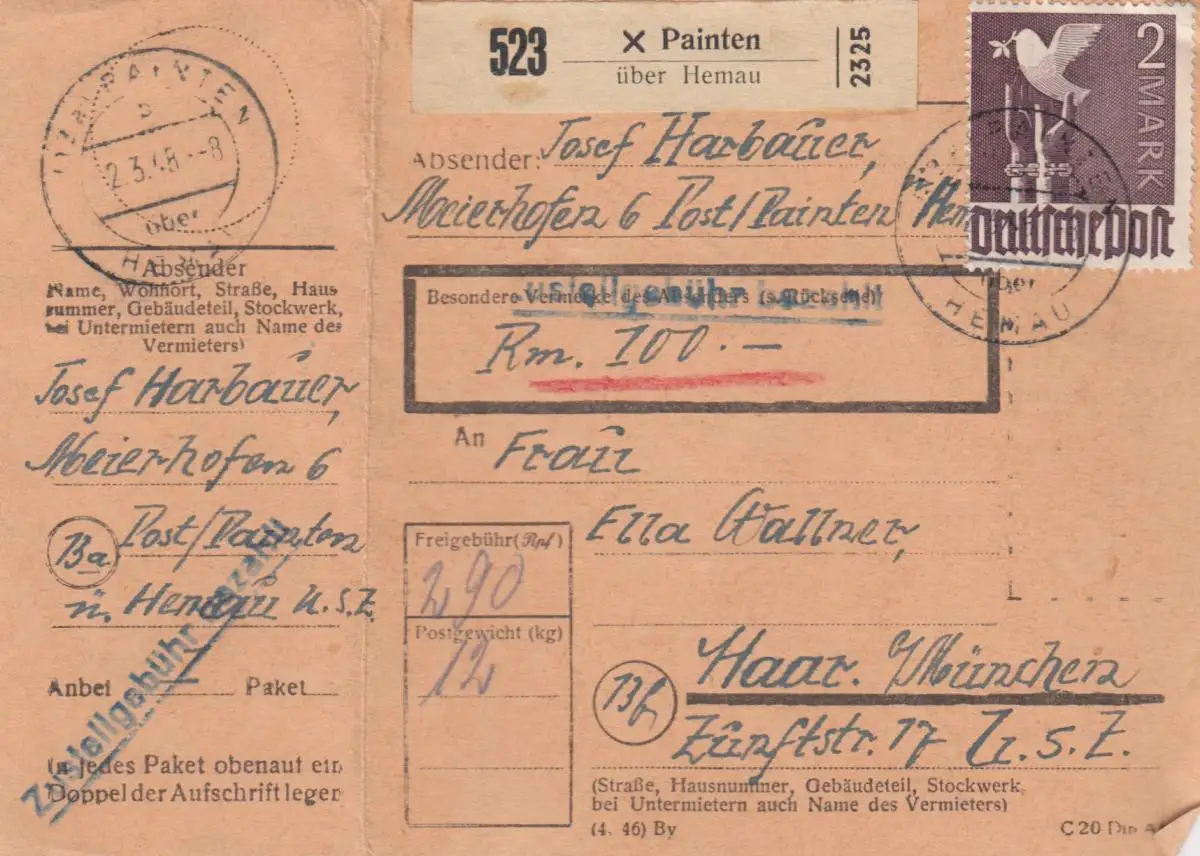 523
× Painten
über Hemau
2325
2 MARK
Deutsche Post
PAINTEN
b
2.3.48.--8
über
HEMAU
Absender: Josef Harbauer,
Meierhofen 6 Post/Painten ü. Hem
Besondere Vermerke des Absenders (s. Rückseite)
ustellgebühr bezahlt
Rm. 100.—
An Frau
Ella Wallner,
Haar. b/München
13b
Zunftstr. 17 U.S.Z.
(Straße, Hausnummer, Gebäudeteil, Stockwerk,
bei Untermietern auch Name des Vermieters)
(4. 46) By
C 20 Din A
Freigebühr (Rpf)
290
Postgewicht (kg)
12
Absender
Name, Wohnort, Straße, Haus
nummer, Gebäudeteil, Stockwerk,
bei Untermietern auch Name des
Vermieters)
Josef Harbauer,
Meierhofen 6
13a
Post/Painten
ü. Hemau U.S.Z.
Zustellgebühr bezahlt
Anbei Paket
In jedes Paket obenauf ein
Doppel der Aufschrift legen
über
HEMAU